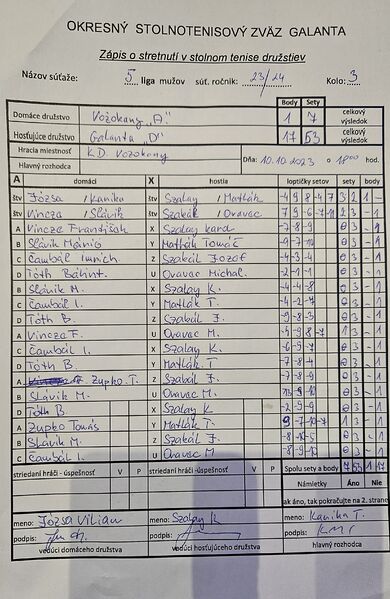 OKRESNÝ STOLNOTENISOVÝ ZVÄZ GALANTA
Zápis o stretnutí v stolnom tenise družstiev
Názov súťaže: 5 liga mužov súť. ročník: 23/24 Kolo: 3
Body Sety
Domáce družstvo Vozokany "A" 1 7 celkový výsledok
Hosťujúce družstvo Galanta "D" 17 53 celkový výsledok
Hracia miestnosť K.D. Vozokany
Hlavný rozhodca Dňa: 10.10.2023 o 18 00 hod.
A domáci X hostia loptičky setov sety body
štv Józsa / Kanika štv Szalay / Matlák -4 9 8 -4 7 3 2 1 -
štv Vincza / Slávik štv Szakál / Oravac 7 9 -6 -7 2 3 - 1
A Vincza František X Szalay -7 -8 -9 0 3 - 1
B Slávik Y Matlák Tomáš -9 -7 -10 0 3 - 1
C Čambál Z Szakál Jozef -4 -3 -4 0 3 - 1
D Tóth Bálint U Oravac Michal -2 -1 -1 0 3 - 1
B Slávik M. X Szalay K. -4 -4 -8 0 3 - 1
C Čambál I. Y Matlák T. -4 -2 -7 0 3 - 1
D Tóth B. Z Szakál J. -7 -8 -9 0 3 - 1
A Vincza F. U Oravac M. 9 -8 -7 1 3 - 1
C Čambál I. X Szalay K. -6 -9 -7 0 3 - 1
D Tóth B. Y Matlák T -7 -8 -4 0 3 - 1
A Zupko T. Z Szakál J. -7 -8 -9 0 3 - 1
B Slávik M. U Oravac M. 0 3 - 1
D Tóth B X Szalay K -2 -9 -9 0 3 - 1
A Zupko Tomáš Y Matlák T. 9 -7 -10 -7 1 3 - 1
B Slávik M. Z Szakál J. -8 -10 -5 0 3 - 1
C Čambál I. U Oravac M -8 -9 -10 0 3 - 1
striedaní hráči - úspešnosť V P striedaní hráči - úspešnosť V P Spolu sety a body 7 53 1 17
Námietky Áno Nie
ak áno, tak pokračujte na 2. strane
meno: Józsa Viliam meno: Szalay K meno: Kanika T.
podpis: podpis: podpis:
vedúci domáceho družstva vedúci hosťujúceho družstva hlavný rozhodca